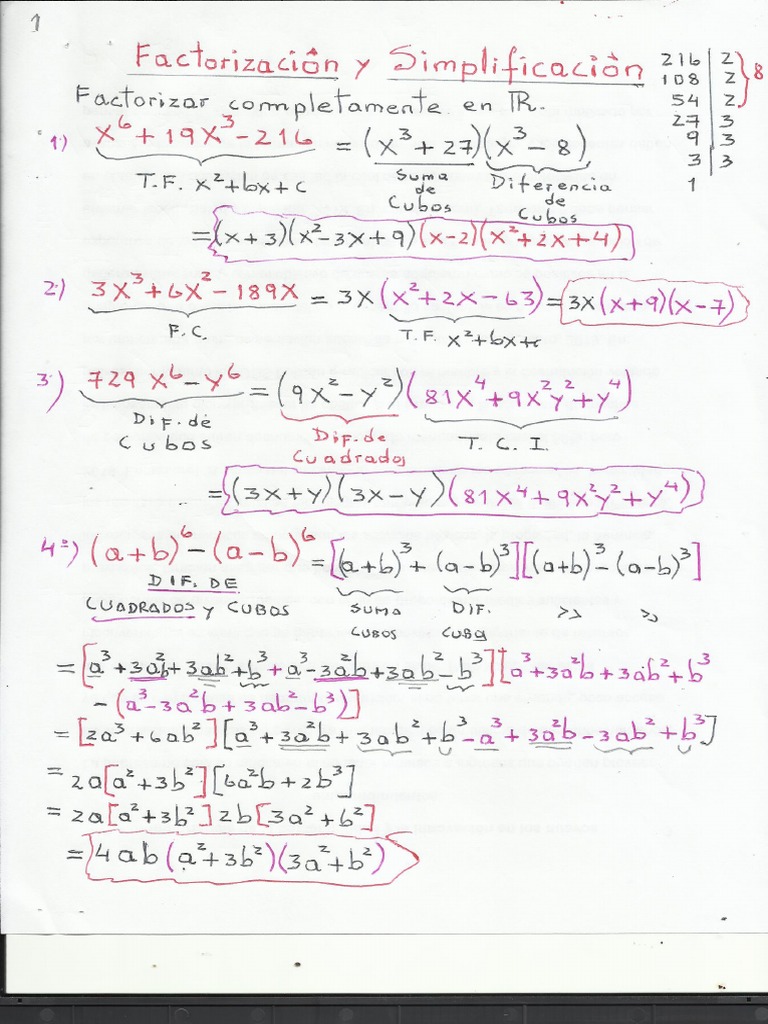 1
Factorización y Simplificación
Factorizar completamente en R.
216 | 2
108 | 2
54 | 2
27 | 3
9 | 3
3 | 3
1
} 8
1) x⁶+19x³-216 = (x³+27)(x³-8)
T.F. x²+bx+c
Suma de Cubos
Diferencia de Cubos
=(x+3)(x²-3x+9)(x-2)(x²+2x+4)
2) 3x³+6x²-189x = 3x(x²+2x-63)=3x(x+9)(x-7)
F.C.
T.F. x²+bx+c
3) 729 x⁶-y⁶ = (9x²-y²)(81x⁴+9x²y²+y⁴)
Dif. de Cubos
Dif. de Cuadrados
T.C.I.
=(3x+y)(3x-y)(81x⁴+9x²y²+y⁴)
4) (a+b)⁶-(a-b)⁶=[(a+b)³+(a-b)³][(a+b)³-(a-b)³]
DIF. DE CUADRADOS y CUBOS
SUMA CUBOS
DIF. CUBO
>> >>
=[a³+3a²b+3ab²+b³+a³-3a²b+3ab²-b³][a³+3a²b+3ab²+b³
-(a³-3a²b+3ab²-b³)]
=[2a³+6ab²][a³+3a²b+3ab²+b³-a³+3a²b-3ab²+b³]
=2a[a²+3b²][6a²b+2b³]
=2a[a²+3b²]2b[3a²+b²]
=4ab(a²+3b²)(3a²+b²)